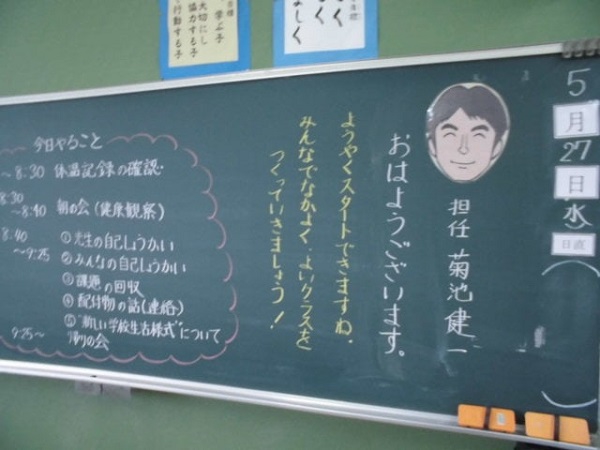 学ぶ子
大切にし
協力する子
行動する子
5
月
27
日
水
日直
担任 菊池 健一
おはようございます。
ようやくスタートできますね。
みんなでなかよく、よいクラスを
つくっていきましょう!
今日やること
~8:30 体温記録の確認
8:30
~8:40 朝の会(健康観察)
8:40
~9:25
①先生の自己しょうかい
②みんなの自己しょうかい
③課題の回収
④配付物の話(連絡)
⑤"新しい学校生活様式"について
9:25~ 帰りの会